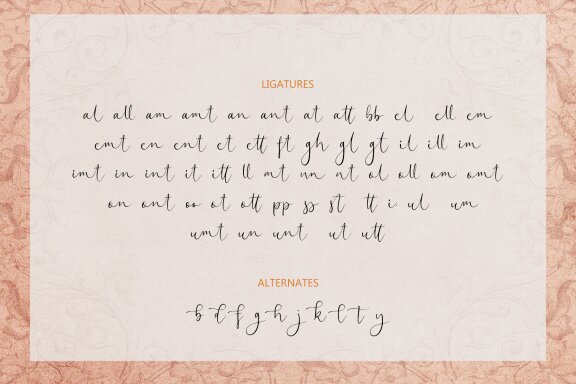 LIGATURES
al all am amt an ant at att bb el ell em
emt en ent et ett ft gh gl gt il ill im
imt in int it itt ll mt nn nt ol oll om omt
on ont oo ot ott pp ss st tt i: ul um
umt un unt ut utt
ALTERNATES
b d f g h j k l t y